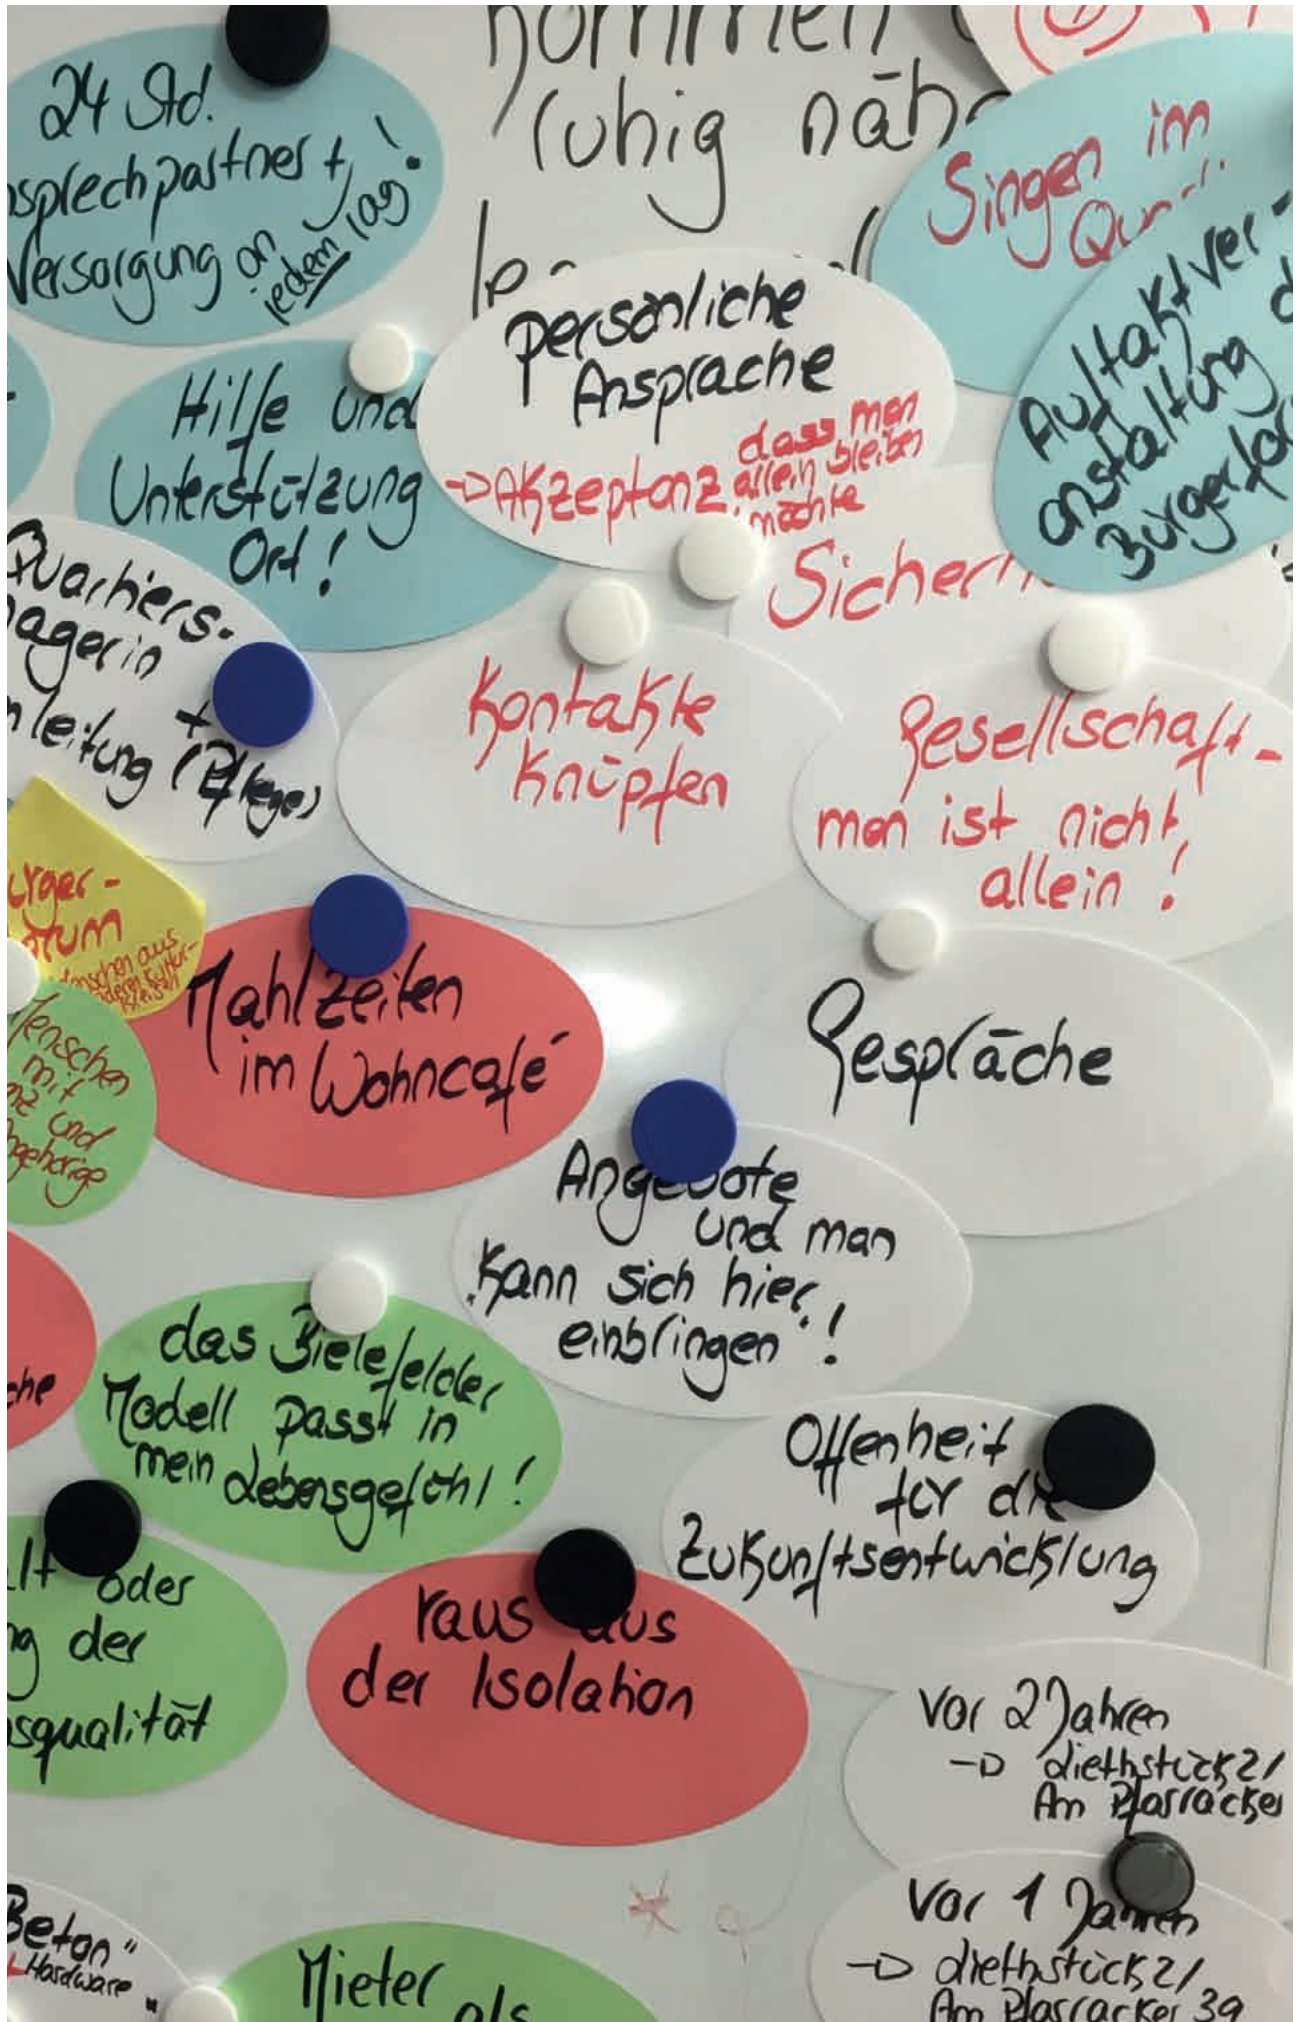 kommen
ruhig näh
24 Std.
sprechpartner +
Versorgung an
jedem Tag!
Singen im
Auftaktver-
anstaltung d
Bürgerfor
persönliche
Ansprache
→ Akzeptanz,
dass man
allein bleiben
möchte
Hilfe und
Unterstützung
Ort!
Sicherh
Quartiers-
nagerin
+
nleitung (Pflege)
Kontakte
knüpfen
Gesellschaft -
man ist nicht
allein!
ürger-
Menschen aus
anderen Kultur-
kreisen
Menschen
mit
nz und
ngehörige
Mahlzeiten
im Wohncafé
Gespräche
Angebote
und man
"kann sich hier
einbringen"!
che
das Bielefelder
Modell passt in
mein Lebensgefühl!
Offenheit
für die
Zukunftsentwicklung
lt oder
ng der
squalität
raus aus
der Isolation
Vor 2 Jahren
→ diethstück 2/
Am Pfarracker
Vor 1 Jahren
→ diethstück 2/
Am Pfarracker 39
Beton"
+ Hardware"
Mieter als